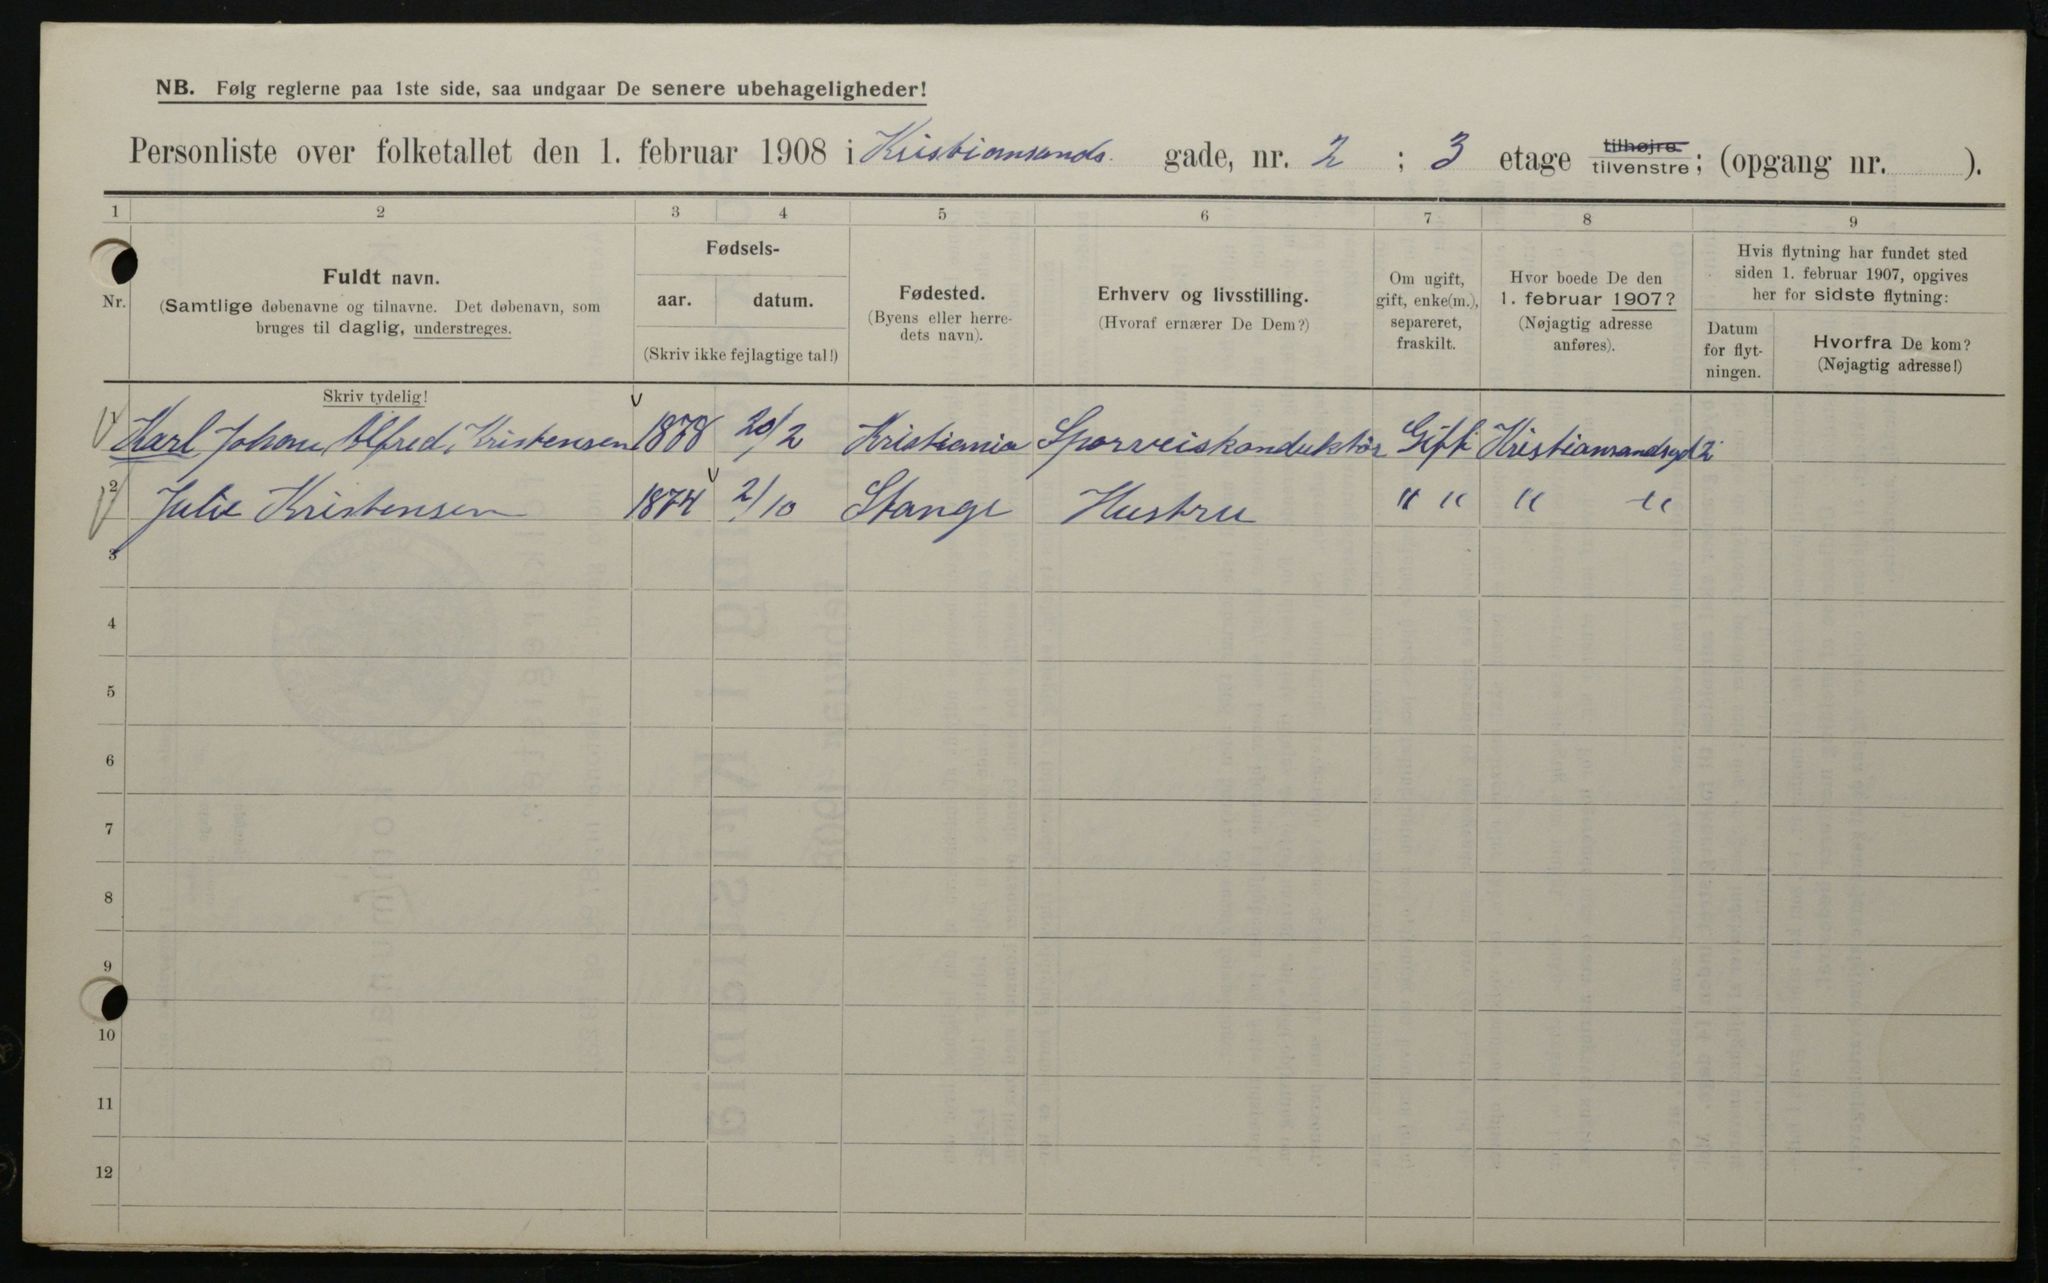 NB. Følg reglerne paa 1ste side, saa undgaar De senere ubehageligheder!
Personliste over folketallet den 1. februar 1908 i Kristiansands gade, nr. 2 ; 3 etage tilhøjre tilvenstre; (opgang nr. ).
1 2 3 4 5 6 7 8 9
Nr.
Fuldt navn.
(Samtlige døbenavne og tilnavne. Det døbenavn, som
bruges til daglig, understreges.
Fødsels-
aar. datum.
(Skriv ikke fejlagtige tal!)
Fødested.
(Byens eller herre-
dets navn).
Erhverv og livsstilling.
(Hvoraf ernærer De Dem?)
Om ugift,
gift, enke(m.),
separeret,
fraskilt.
Hvor boede De den
1. februar 1907?
(Nøjagtig adresse
anføres).
Hvis flytning har fundet sted
siden 1. februar 1907, opgives
her for sidste flytning:
Datum
for flyt-
ningen.
Hvorfra De kom?
(Nøjagtig adresse!)
Skriv tydelig!
1 Karl Johan Alfred Kristensen 1878 20/2 Kristiania Sporveiskonduktör Gift Kristiansandsgd 2
2 Julie Kristensen 1874 2/10 Stange Hustru " " " "
3
4
5
6
7
8
9
10
11
12